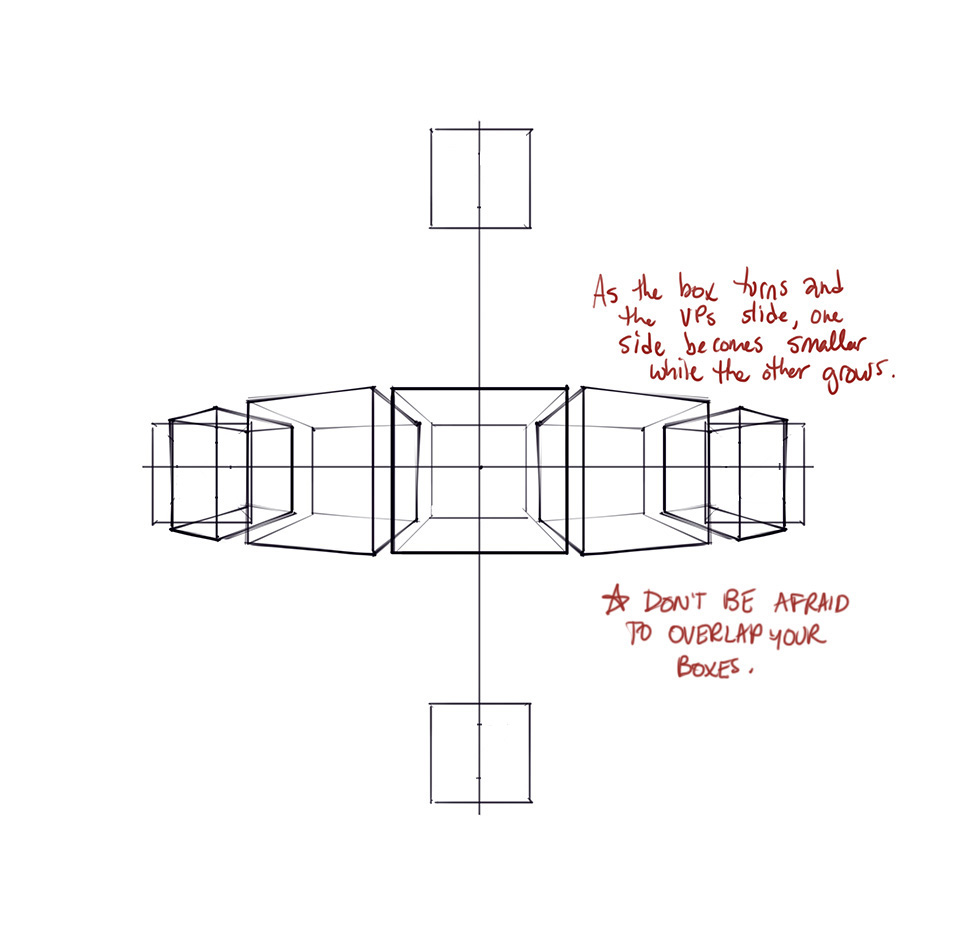 As the box turns and
the VPs slide, one
side becomes smaller
while the other grows.
☆ DON'T BE AFRAID
TO OVERLAP YOUR
BOXES.